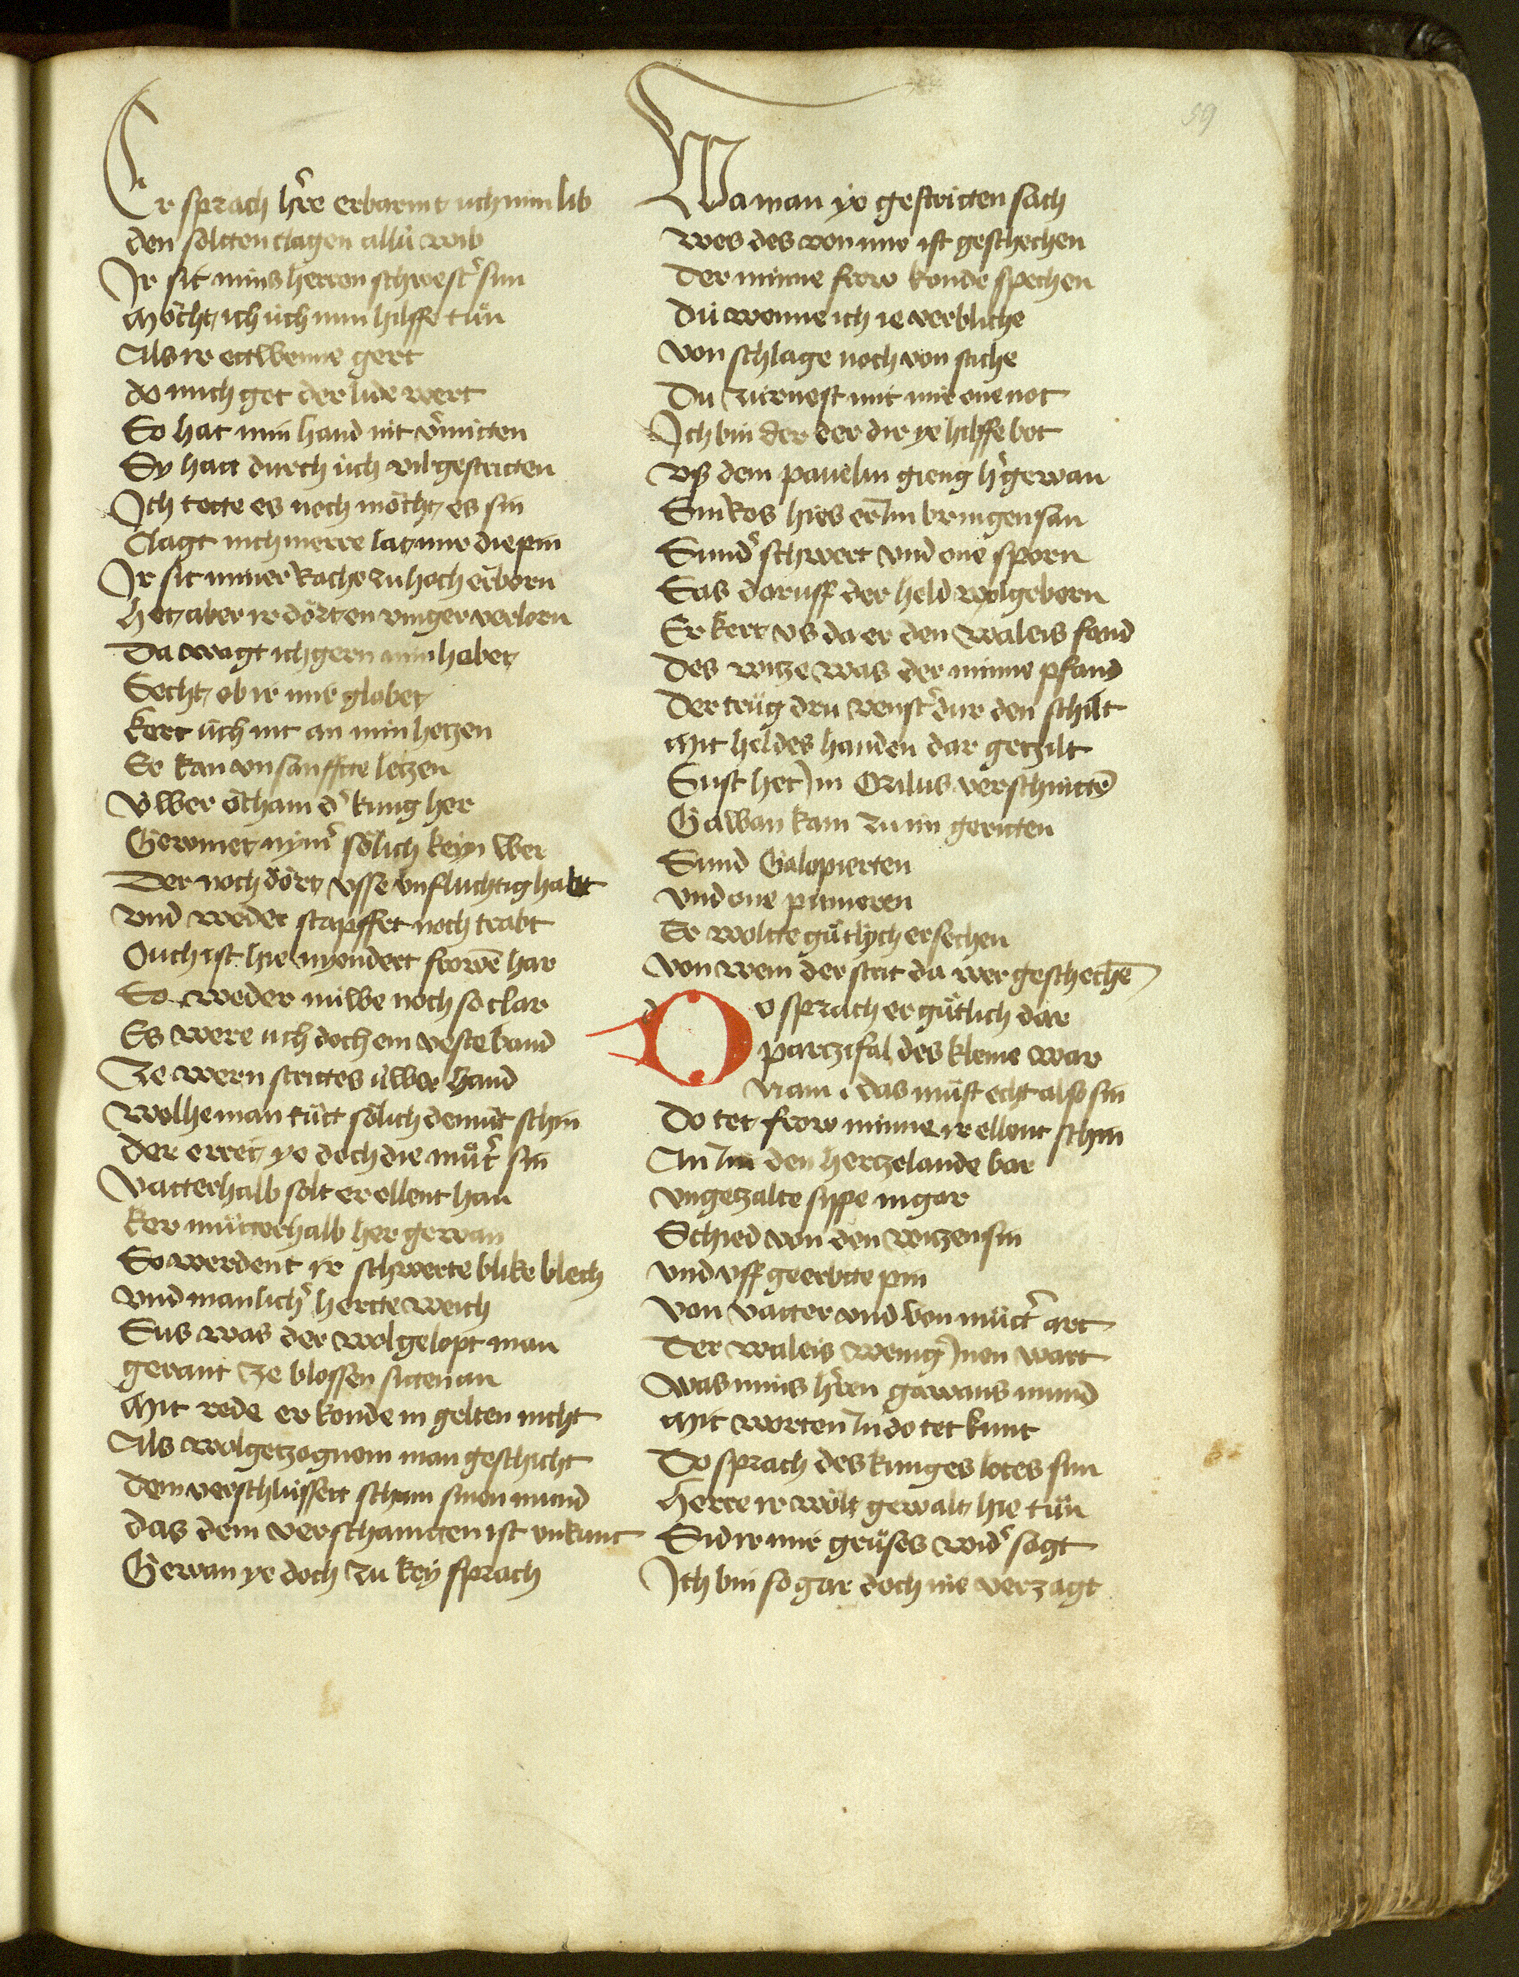 59
Er sprach hre erbarmt uch min lib
den soltten clagen allu wib
Jr sit mins herren schwestˀ sun
Mocht ich uch min hilffe tůn
Als ir ettwenne gert
do mich got der lide wert
So hat min hand nit vˀmitten
Sy hatt durch uch vil gestritten
Jch tette es noch mocht es sin
Clagt nich merre lat mir die pin
Jr sit miner rache zu hoch erborn
Het aber ir dort en vinger verlorn
Da wagt ich gern min habet
Secht ob ir mir glabet
kert uch nit an min hetzen
Er kan vnsanffte letzen
Vwer ocham dˀ kung her
Gewinet nymˀ solich keyn wer
Der noch dort vsse vnfluchtig habt
Vnd weder stapffet noch trabt
Ouch ist hie nyendert frowē har
So weder mu̇we noch so clar
Es were uch doch ein veste band
Ze wern strites uwer hand
Welhe man tůtt solich demůt schin
Der erret ye doch die můtˀ sin
Vatterhalb solt er ellent han
ker můtterhalb her gewan
So werdent ir schwerte blike blech
Vnd manlichˀ hertte weich
Sus was der wolgelopt man
gerant ze blossen sitten an
Mit rede er konde in gelten nicht
Als wolgetzognem man geschicht
Dem verschlu̇ssett scham sinen mund
das dem verschamtten ist vnkunt
Gewan ye doch zu key sprach
Wa man ye gestritten sach
Wes des von mir ist geschechen
Der minne frow konde spechen
Du wenne ich ie verbliche
Von schlage noch von stiche
Du zurnest mit mir one not
Jch bin der der dir ye hilffe bot
Vß dem pavelun gieng hˀ gewan
Sin kos hies er im bringen san
Sundˀ schwert vnd one sporn
Sas daruff der held wolgeborn
Er kert vs da er den waleis fand
Des witze was der minne pfand
Der trůg dru venstˀ dur den schilt
Mit heldes handen dar getzilt
Sust het in Orilus verschnittē
Gawan kam zu im geritten
Sund Galopierten
Vnd one punieren
Er woltte gůtlych ersechen
Von wem der strit da wer geschechē
d
Do sprach er gůtlich dar
parzifal des kleine war
Nam das můst echt also sin
Do tet frow minne ir ellent schin
An im den hertzelaude bar
Vngetzalte sippe in gar
Schied von den witzen sin
Vnd vff geerbtte pin
Von vatter vnd von můtˀ art
Der waleis wenig jnen wart
Was mins hren gawans mund
Mit worten in do tet kunt
Do sprach des kunges lotes sun
Herre ir wolt gewalt hie tůn
Sid ir mir grůses widˀ sagt
Jch bin so gar doch nie verzagt